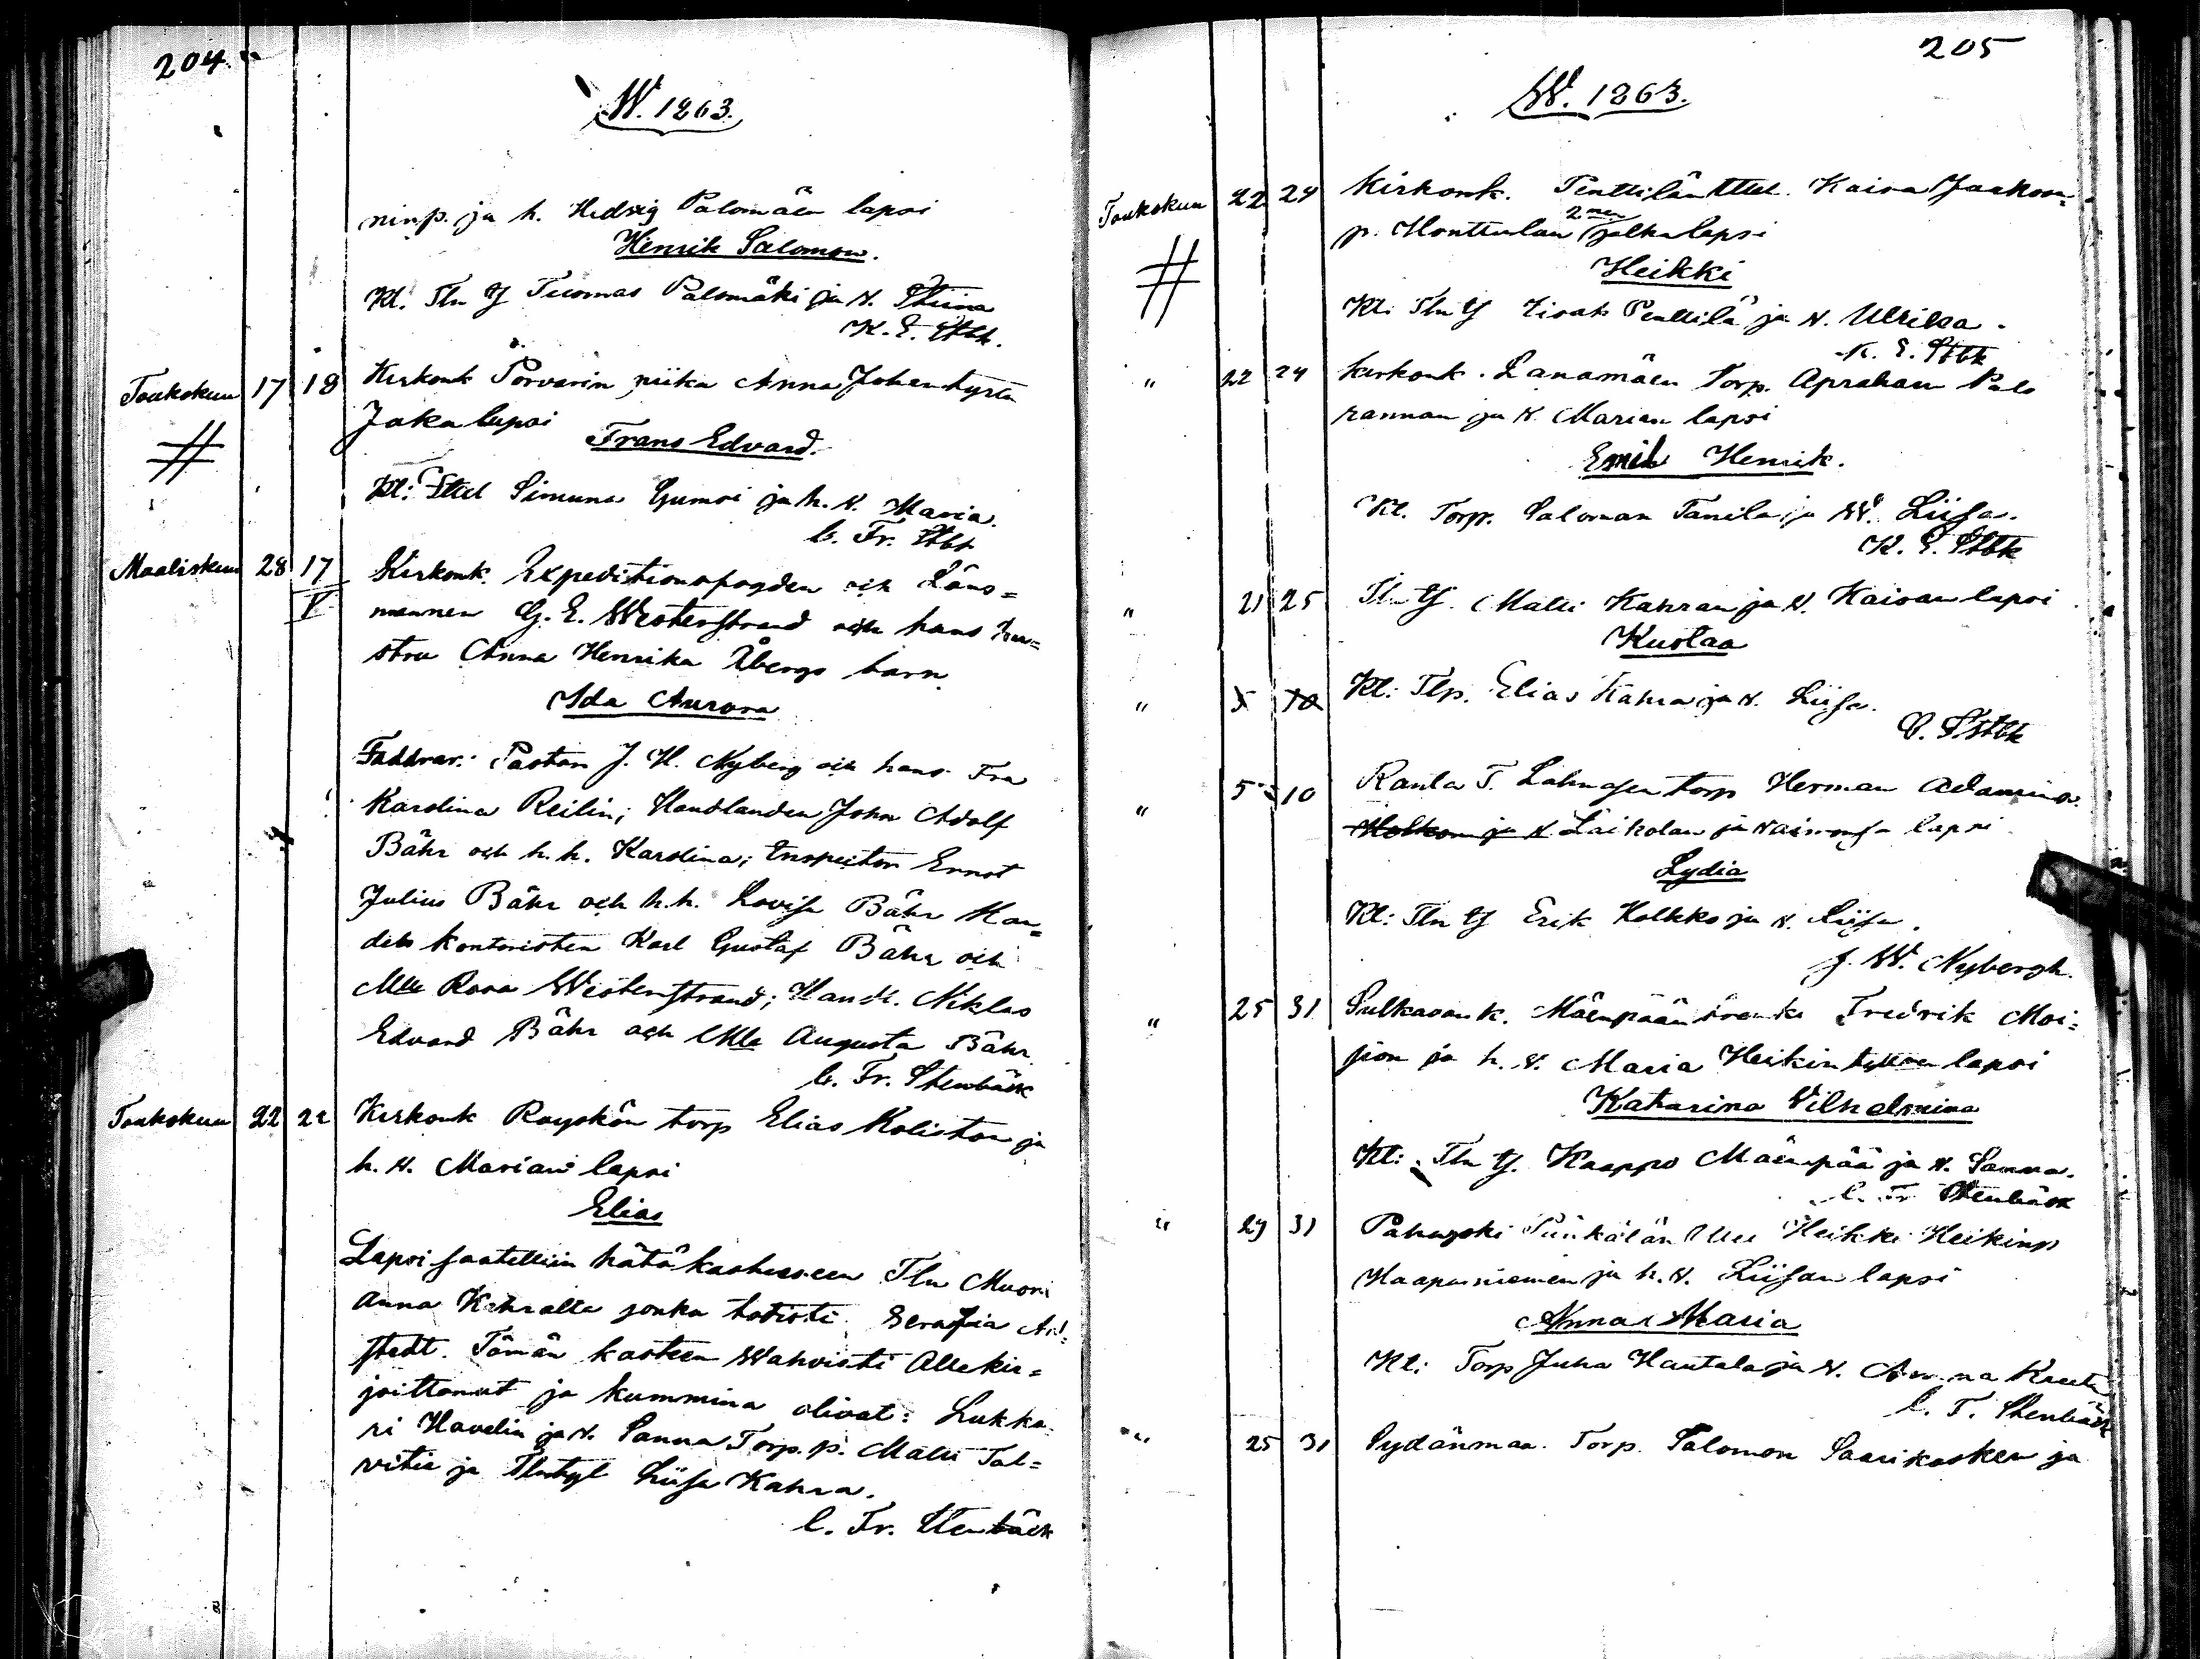 204
W. 1863.
ninp. ja h. Hedvig Palomäen lapsi
Henrik Salomon.
Kl. Tln Tuomas Palomäki ja W. Stiina
K. E. Stbk.
Toukokuun 17 18 Kirkonk Porvarin piika Anna Johentytön
Jaka lapsi
Frans Edvard.
Kl: Ittel Simuna Gumsi ja h. W. Maria.
C. Fr. Stbk
Maaliskuun 28 17 V Kirkonk. Expeditionsfogden och Läns=
mannen G. E. Westerstrand och hans hu=
stru Anna Henrika Åbergs barn
Ida Aurora
Faddrar: Pastorn J. H. Nyberg och hans Fru
Karolina Reilin; Handlanden John Adolf
Bähr och h. h. Karolina; Inspector Ernst
Julius Bähr och h.h. Lovisa Bähr Han=
dels kontoristen Karl Gustaf Bähr och
Mlle Rosa Westerstrand; Handl. Niklas
Edvard Bähr och Mlle Augusta Bähr
C. Fr. Stenbäck
Toukokuun 22 22 Kirkonk Röyskön torp Elias Koliston ja
h. W. Marian lapsi
Elias
Lapsi saatettiin hätäkasteeseen Tln Muori
Anna Kahralta jonka todisti Serafia
stedt. Tämän kasteen Wahvisti Allekir=
joittanut ja kummina olivat: Lukka
ri Havelin ja W. Sanna Torp. p. Matti Tal=
vitie ja Tlntyt Liisa Kahra.
C. Fr. Stenbäck
205
W. 1863.
Toukokuun 22 24 Kirkonk. Penttilän Ittel. Kaisa Jaakon=
p. Honttulan 2nen jalkalapsi
Heikki
Kl: Tln Iisak Penttilä ja W. Ulrika.
K. E. Stbk
" 22 24 Kirkonk. Lanamäen Torp. Apraham Palo
rannan ja W. Marian lapsi
Emil Henrik.
Kl. Torp. Saloman Tanila ja W. Liisa.
K. E. Stbk
" 21 25 Tln Matti Kahran ja W. Kaisan lapsi
Kustaa
" 5 10 Kl: Tlp. Elias Kahra ja W. Liisa.
Stbk
" 5 10 Ranta T. Torp Herman Adamin
Holkon ja W Laikolan ja Waimonsa lapsi
Lydia
Kl: Tln Erik Holkko ja W. Liisa.
J. W. Nybergh.
" 25 31 Sulkavank. Mäenpään Fredrik Moi=
sion ja h. W. Maria Heikintyttären lapsi
Katarina Vilhelmina
Kl: Tln Kaappo Mäenpää ja W. Sanna.
C. Fr Stenbäck
" 29 31 Pahajoki Heikki Heikinp
Haapaniemen ja h. W. Liisan lapsi
Anna Maria
Kl: Torp Juha Hautala ja W. Anna Kreeta
C. F. Stenbäck
" 25 31 Sydänmaa. Torp. Salomon Saarikosken ja